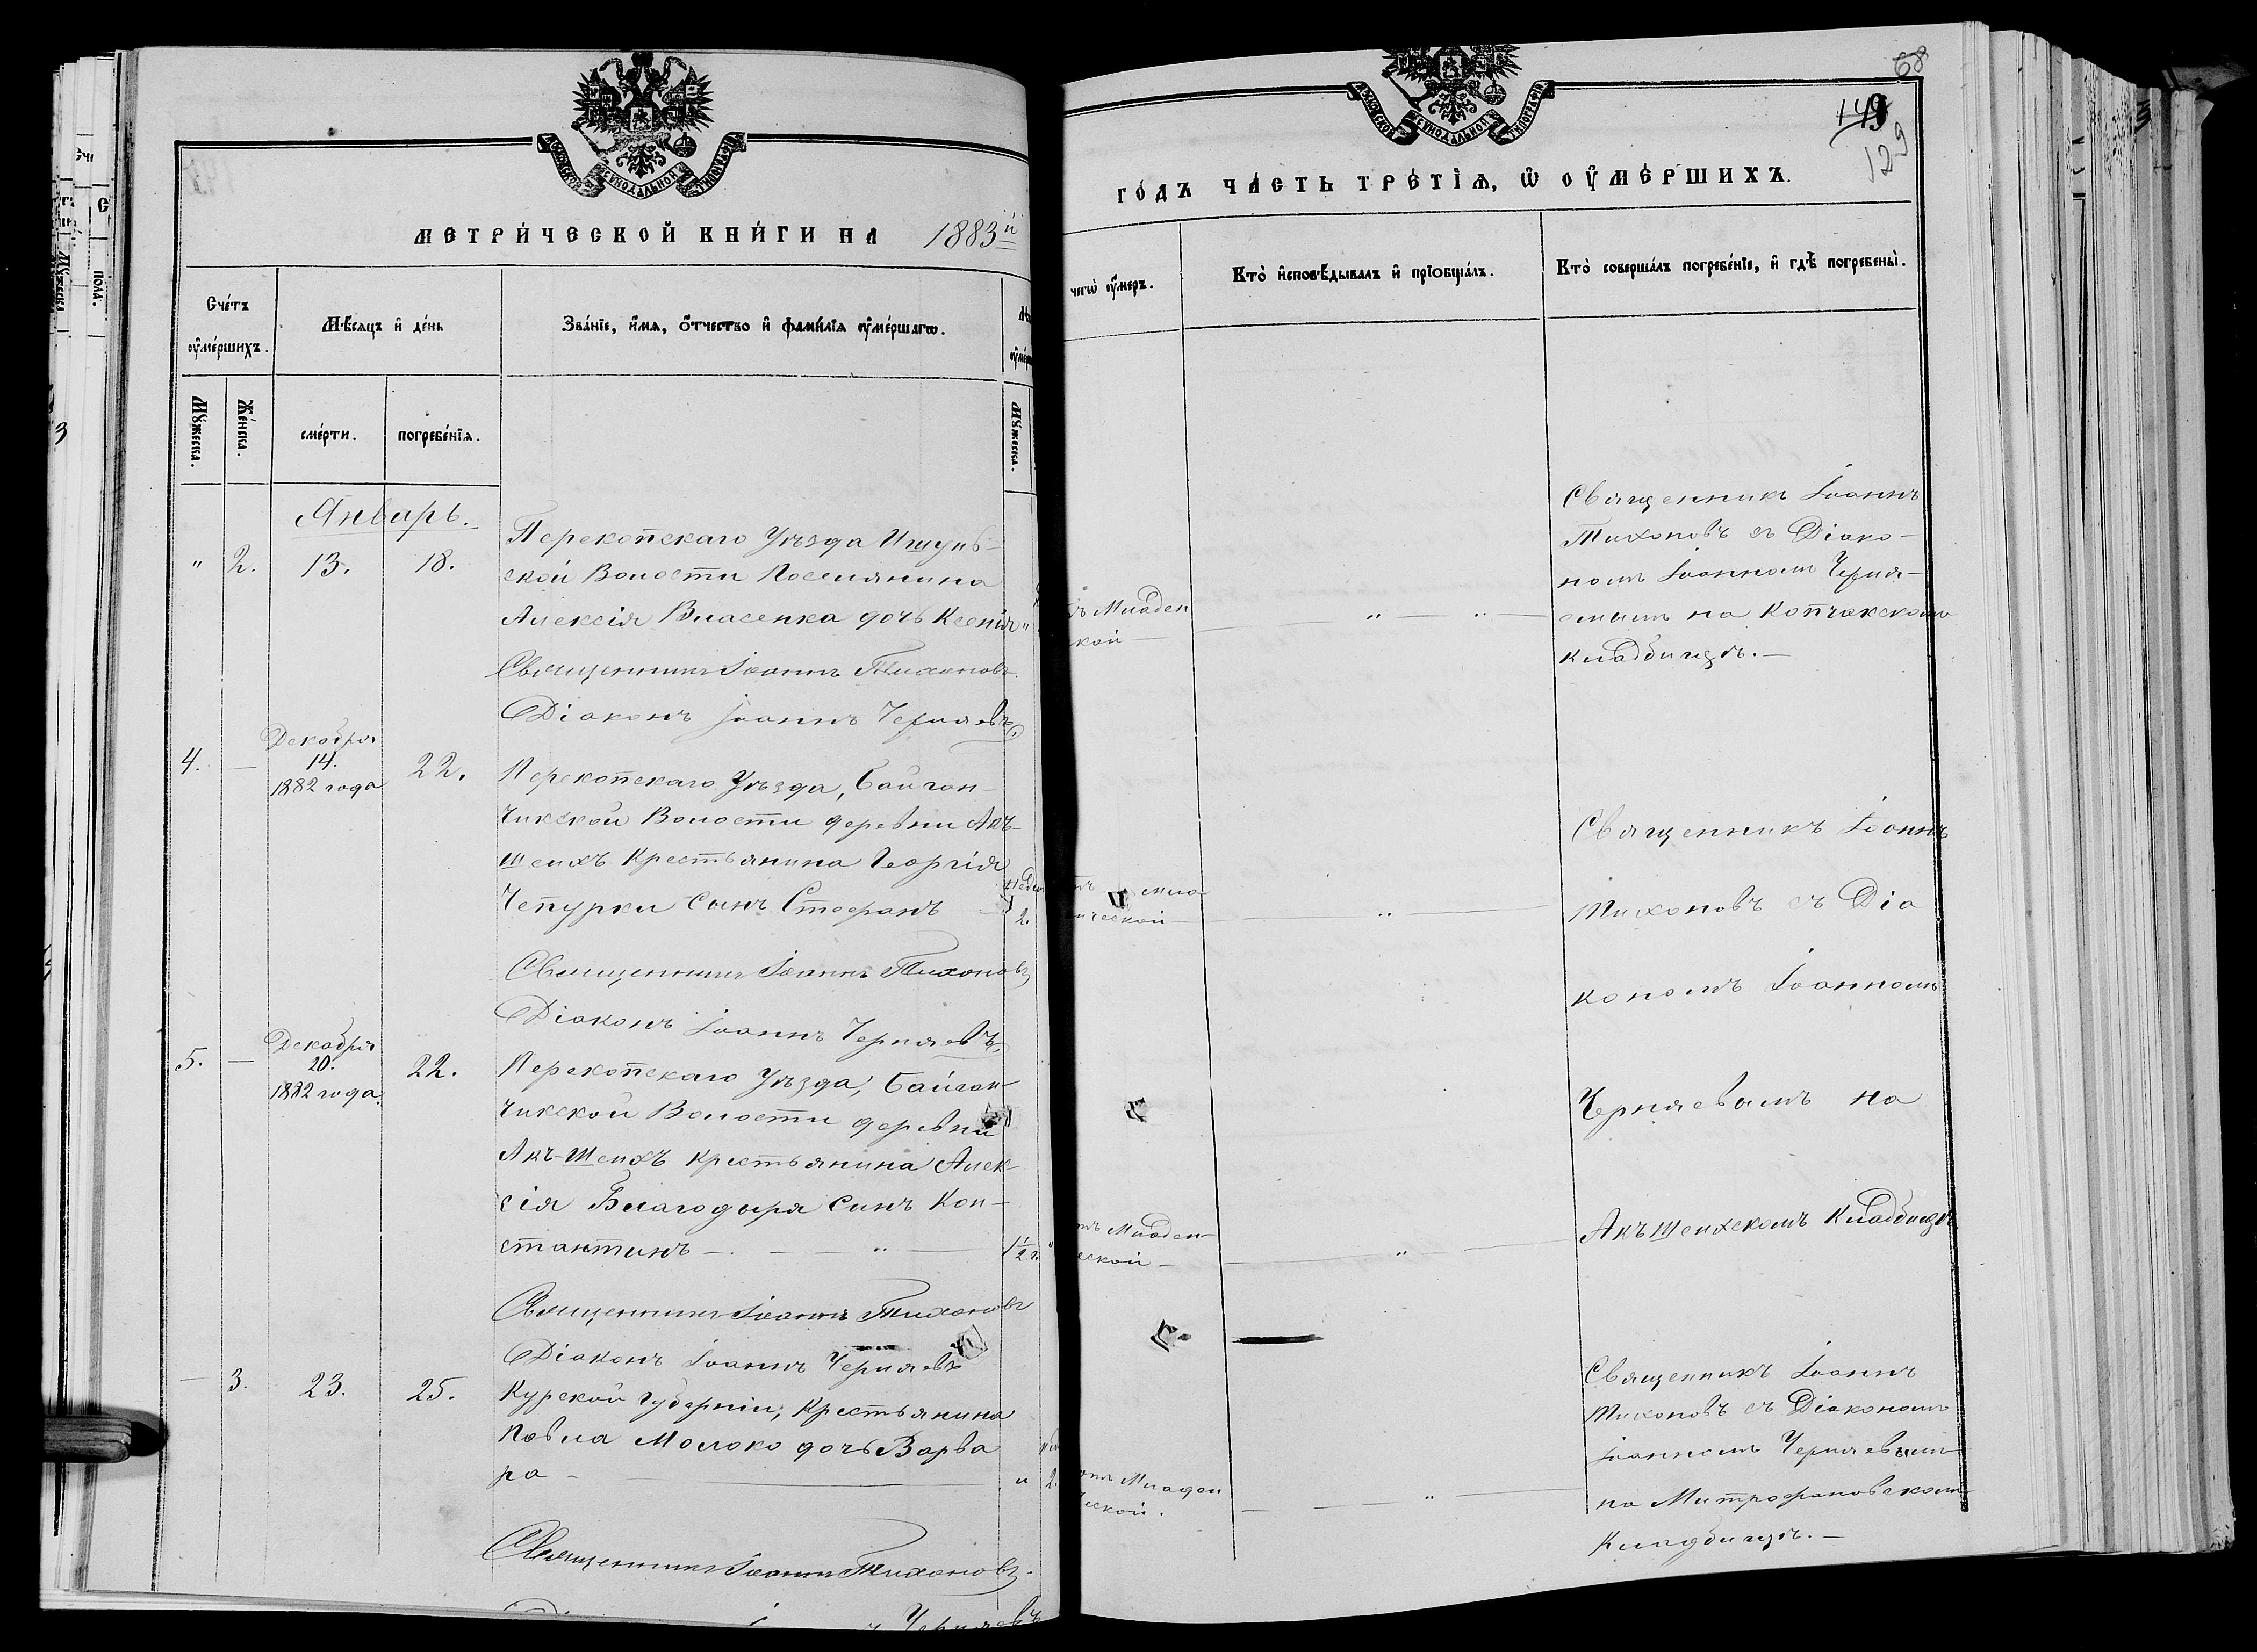 МОСКОВСКОЙ СѴНОДАЛЬНОЙ ТИПОГРАФІИ
МЕТРИ́ЧЕСКОЙ КНИ́ГИ НА 1883й
Счéтъ ᲂу҆мéршихъ.
Мѣ́сяцъ и҆ дéнь
Звáнїе, и҆́мѧ, ѻ҆́тчество и҆ фамѝлїѧ ᲂу҆мéршагѡ.
Мꙋ́жеска.
Жéнска.
смéрти.
погребéнїѧ.
Мꙋ́жеска.
Январь.
" 2. 13. 18.
Перекопскаго Уѣзда Ишунь-
ской Волости Поселянина
Алексія Власенка дочь Ксенія "
Священникъ Іоаннъ Тихоновъ.
Діаконъ Іоаннъ Черняевъ
4. — Декабря 14. 1882 года 22.
Перекопскаго Уѣзда, Байгон-
чикской Волости деревни Акъ-
Шеихъ Крестьянина Георгія
Чепурки сынъ Стефанъ — 2.
Священникъ Іоаннъ Тихоновъ
Діаконъ Іоаннъ Черняевъ
5. — Декабря 20. 1882 года. 22.
Перекопскаго Уѣзда, Байгон-
чикской Волости деревни
Акъ-Шеихъ крестьянина Алек-
сія Благодыря сынъ Кон-
стантинъ — " — 1½ г.
Священникъ Іоаннъ Тихоновъ
Діаконъ Іоаннъ Черняевъ
— 3. 23. 25.
Курской Губерніи, Крестьянина
Павла Молоко дочь Варва
ра — " 2.
Священникъ Іоаннъ Тихоновъ.
Черняевъ
68
149
129
МОСКОВСКОЙ СѴНОДАЛЬНОЙ ТИПОГРАФІИ
ГÓДЪ ЧÁСТЬ ТРÉТЇѦ, Ѽ ОУ҆МÉРШИХЪ.
чегѡ̀ ᲂу҆́меръ.
Ктò и҆сповѣ́дывалъ и҆ прїѡбщáлъ.
Ктò совершáлъ погребéнїе, и҆ гдѣ̀ погребены̀.
Младен
ской —
— " — " —
Священникъ Іоаннъ
Тихоновъ съ Діако-
номъ Іоанномъ Черня-
евымъ на Копчакскомъ
Кладбищѣ. —
Мла-
ической —
— " —
Священникъ Іоаннъ
Тихоновъ съ Діа
кономъ Іоанномъ
Черняевымъ на
Акъ Шеихскомъ Кладбищѣ
Младен-
ческой —
— " —
Священникъ Іоаннъ
Тихоновъ съ Діакономъ
Іоанномъ Черняевымъ
на Митрофановскомъ
Кладбищѣ. —
Младен
ческой.
— " —